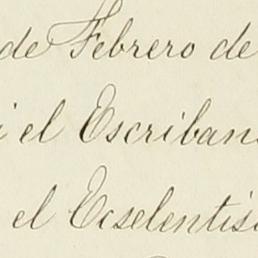 de Febrero de
el Escriban
el Ecselentis